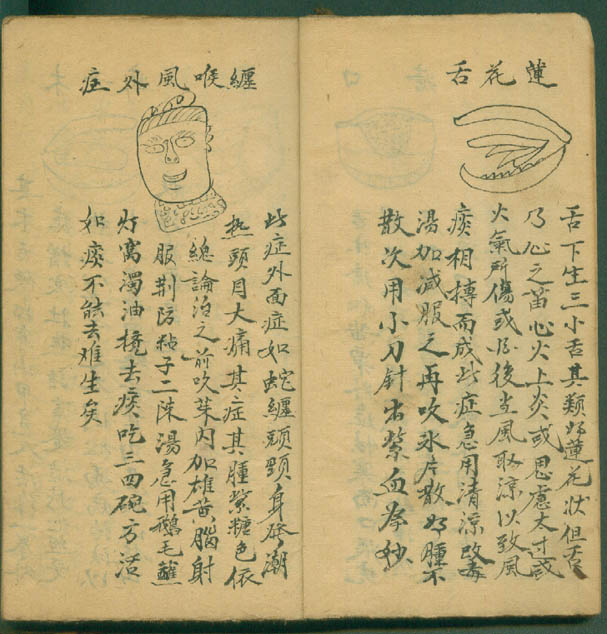 蓮花舌
舌下生三小舌其類如蓮花狀但舌
乃心之苗心火上炎或思慮太过或
火氣所傷或后後当風取涼以致風
痰相摶而成此症急用清凉毒
湯加減服之再吹氷片散如腫不
散次用小刀針出紫血為妙
纏喉風外症
此症外面症如蛇纏頭頸身發潮
热頭目大痛其症其腫紫糖色依
總論治之前吹藥內加雄黃腦射
服荆防粘子二陳湯急用鵝毛蘸
灯窩濁油搅去痰吃三四碗方活
如痰不能去难生矣